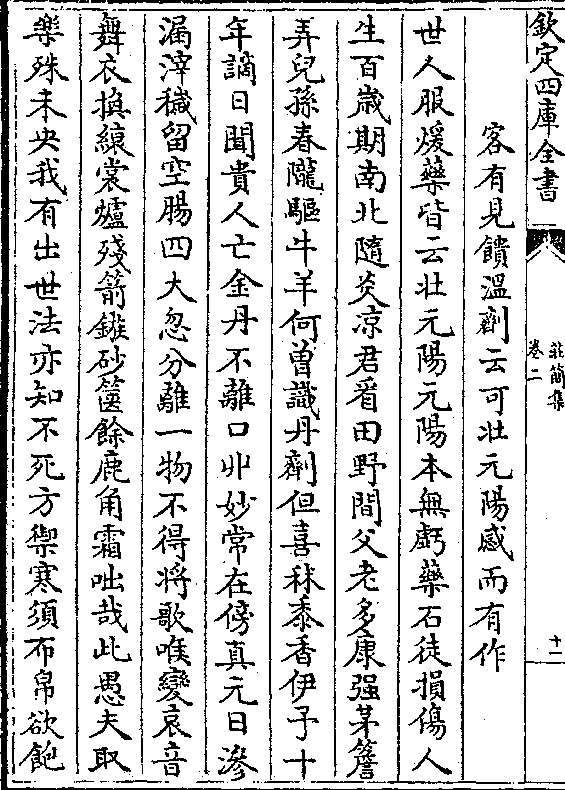 欽定四庫全書
莊簡集
卷二
十二
客有見饋溫劑云可壯元陽感而有作
世人服煖藥皆云壯元陽元陽本無虧藥石徒損傷人
生百歲期南北隨炎凉君看田野間父老多康强茅簷
弄兒孫春隴驅牛羊何曾識丹劑但喜秫黍香伊予十
年謫日聞貴人亡金丹不離口丱妙常在傍真元日滲
漏滓穢留空腸四大忽分離一物不得將歌喉變哀音
舞衣換縗裳爐殘箭鏃砂篋餘鹿角霜咄哉此愚夫取
樂殊未央我有出世法亦知不死方禦寒須布帛欲飽